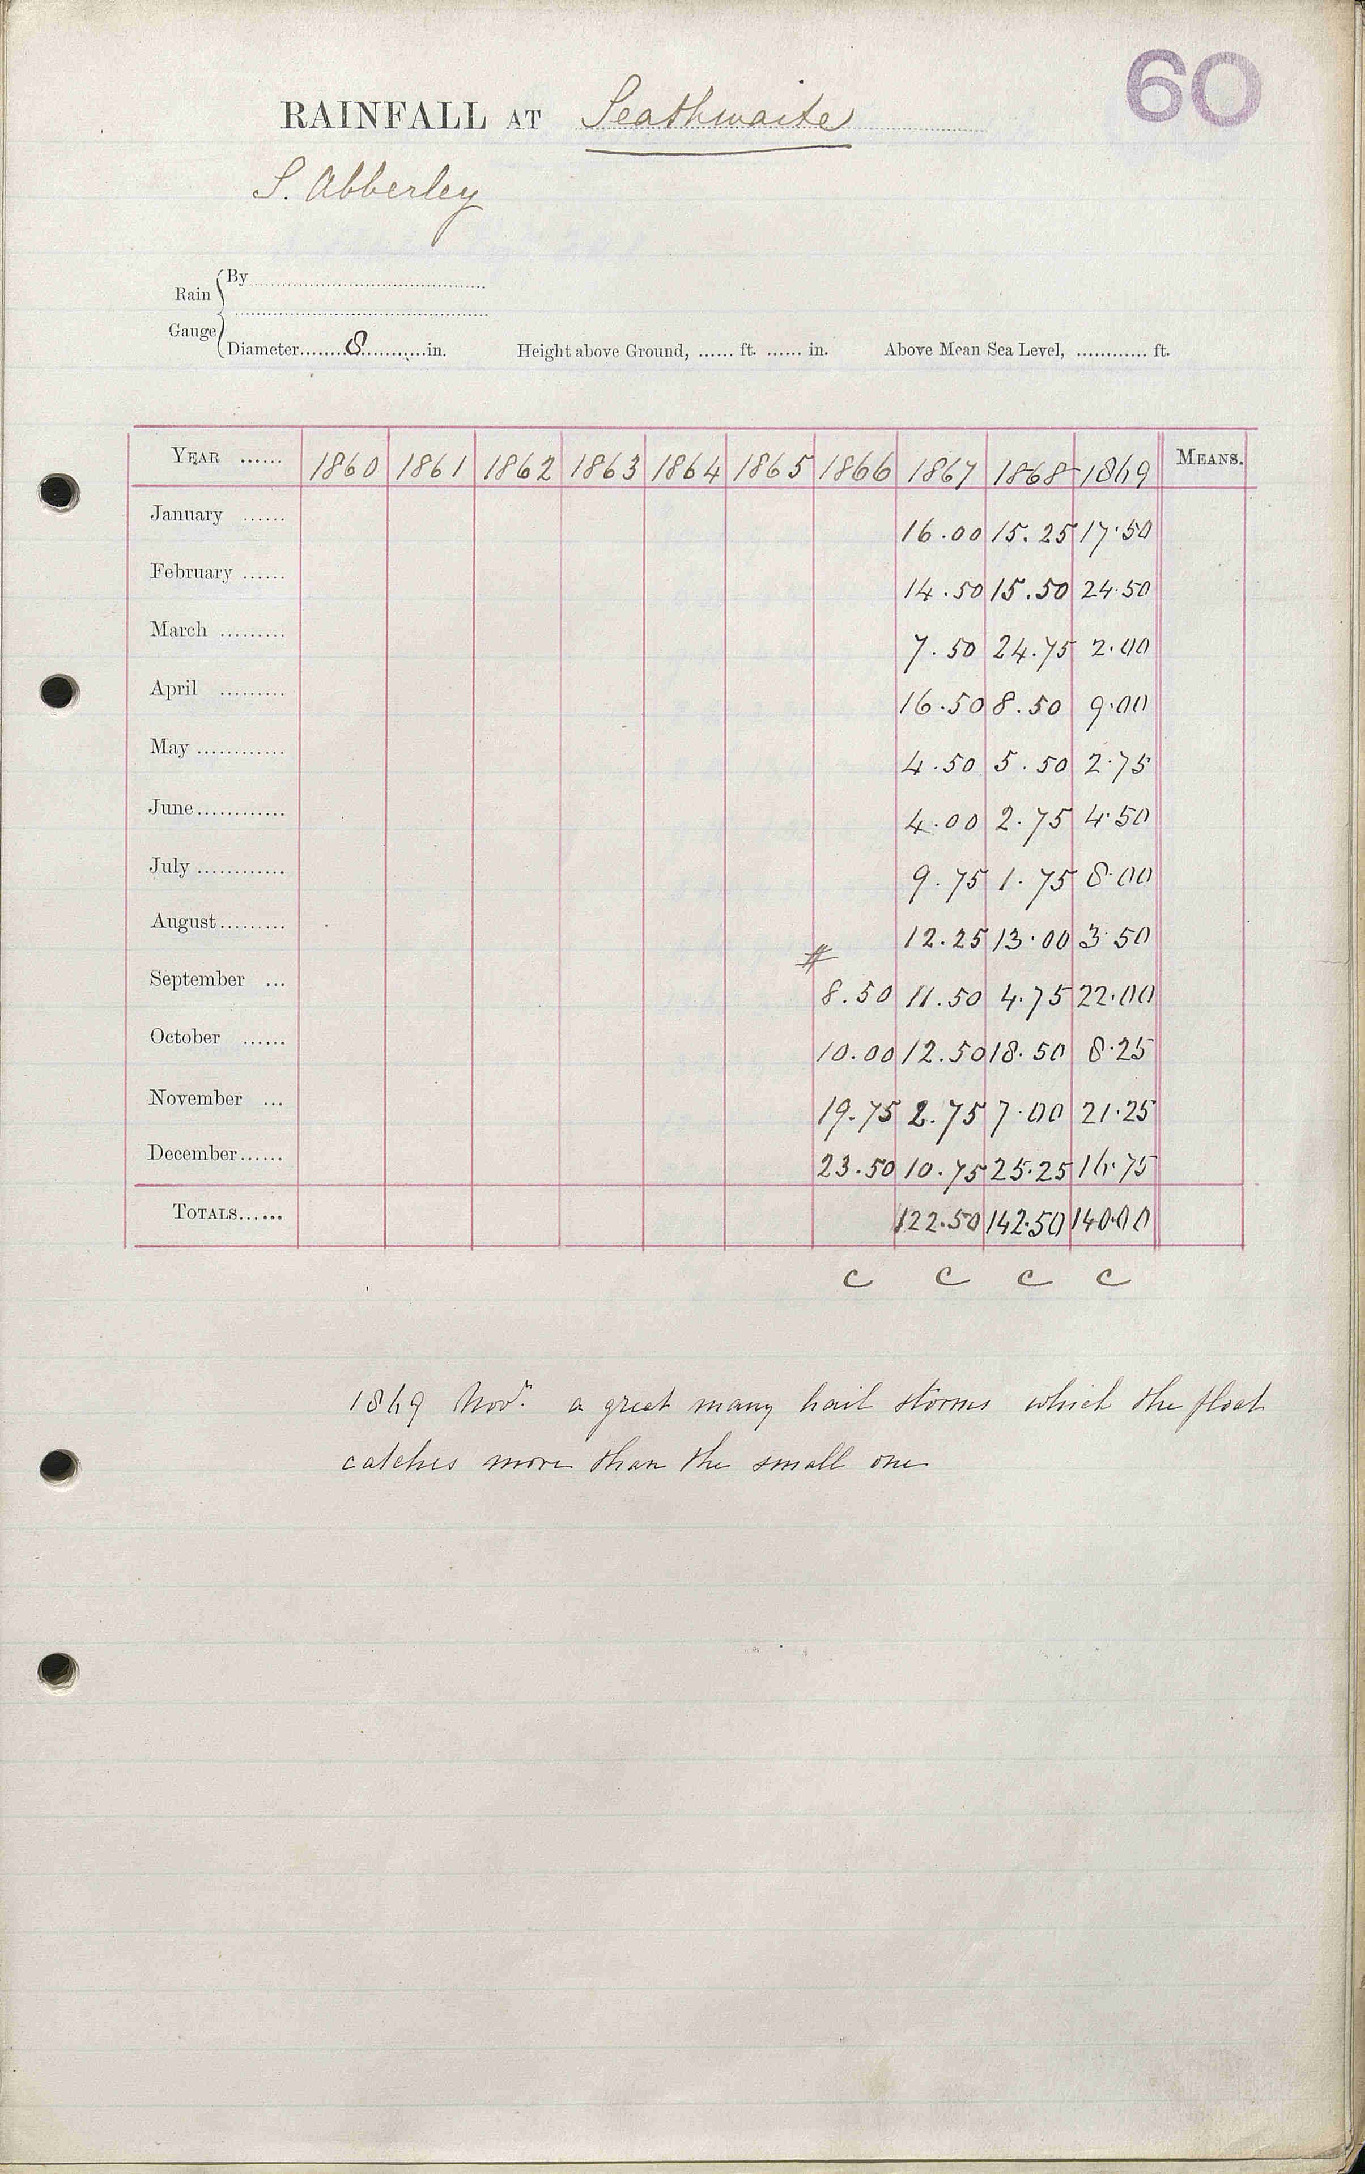 60
RAINFALL AT Seathwaite
S. Abberley
Rain Gauge
By
Diameter 8 in. Height above Ground, ...... ft. ...... in. Above Mean Sea Level, ............ ft.
YEAR ...... 1860 1861 1862 1863 1864 1865 1866 1867 1868 1869 MEANS.
January ...... 16.00 15.25 17.50
February ...... 14.50 15.50 24.50
March ......... 7.50 24.75 2.00
April ......... 16.50 8.50 9.00
May ............ 4.50 5.50 2.75
June ............ 4.00 2.75 4.50
July ............ 9.75 1.75 8.00
August ......... 12.25 13.00 3.50
#
September ... 8.50 11.50 4.75 22.00
October ...... 10.00 12.50 18.50 8.25
November ... 19.75 2.75 7.00 21.25
December ...... 23.50 10.75 25.25 16.75
TOTALS ...... 122.50 142.50 140.00
c c c c
1869 Novr. a great many hail storms which the float
catches more than the small one